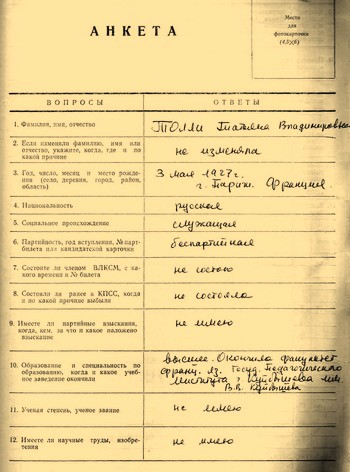 АНКЕТА
Место
для
фотокарточки
ВОПРОСЫ
ОТВЕТЫ
1. Фамилия, имя, отчество
Толли Татьяна Владимировна
2. Если изменяли фамилию, имя или
отчество, укажите, когда, где и по
какой причине
не изменяла
3. Год, число, месяц и место рожде-
ния (село, деревня, город, район,
область)
3 мая 1927 г.
г. Париж. Франция.
4. Национальность
русская
5. Социальное происхождение
служащая
6. Партийность, год вступления, № парт-
билета или кандидатской карточки
беспартийная
7. Состоите ли членом ВЛКСМ, с ка-
кого времени и № билета
не состою
8. Состояли ли ранее в КПСС, когда
и по какой причине выбыли
не состояла
9. Имеете ли партийные взыскания,
когда, кем, за что и какое наложено
взыскание
не имею
10. Образование и специальность по
образованию, когда и какое учеб-
ное заведение окончили
высшее. Окончила факультет
франц. яз. Госуд. Педагогического
института г. Куйбышева им.
В.В. Куйбышева
11. Ученая степень, ученое звание
не имею
12. Имеете ли научные труды, изобре-
тения
не имею